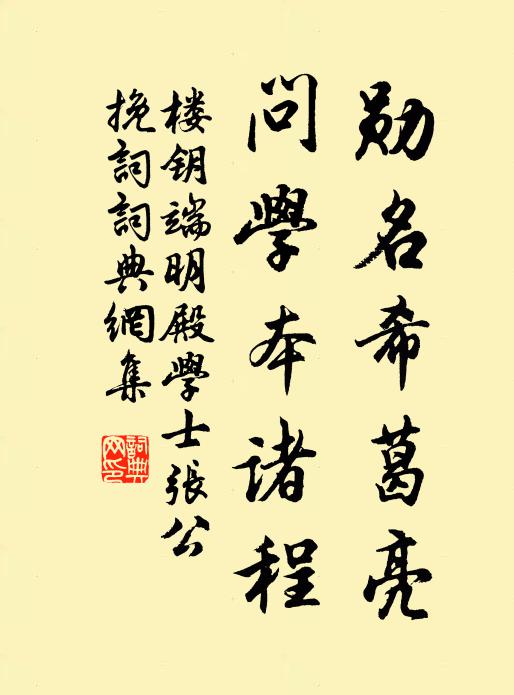 勋名希葛亮
问学本诸程
楼钥端明殿学士張公
挽詞詞典網集
詞典
网印